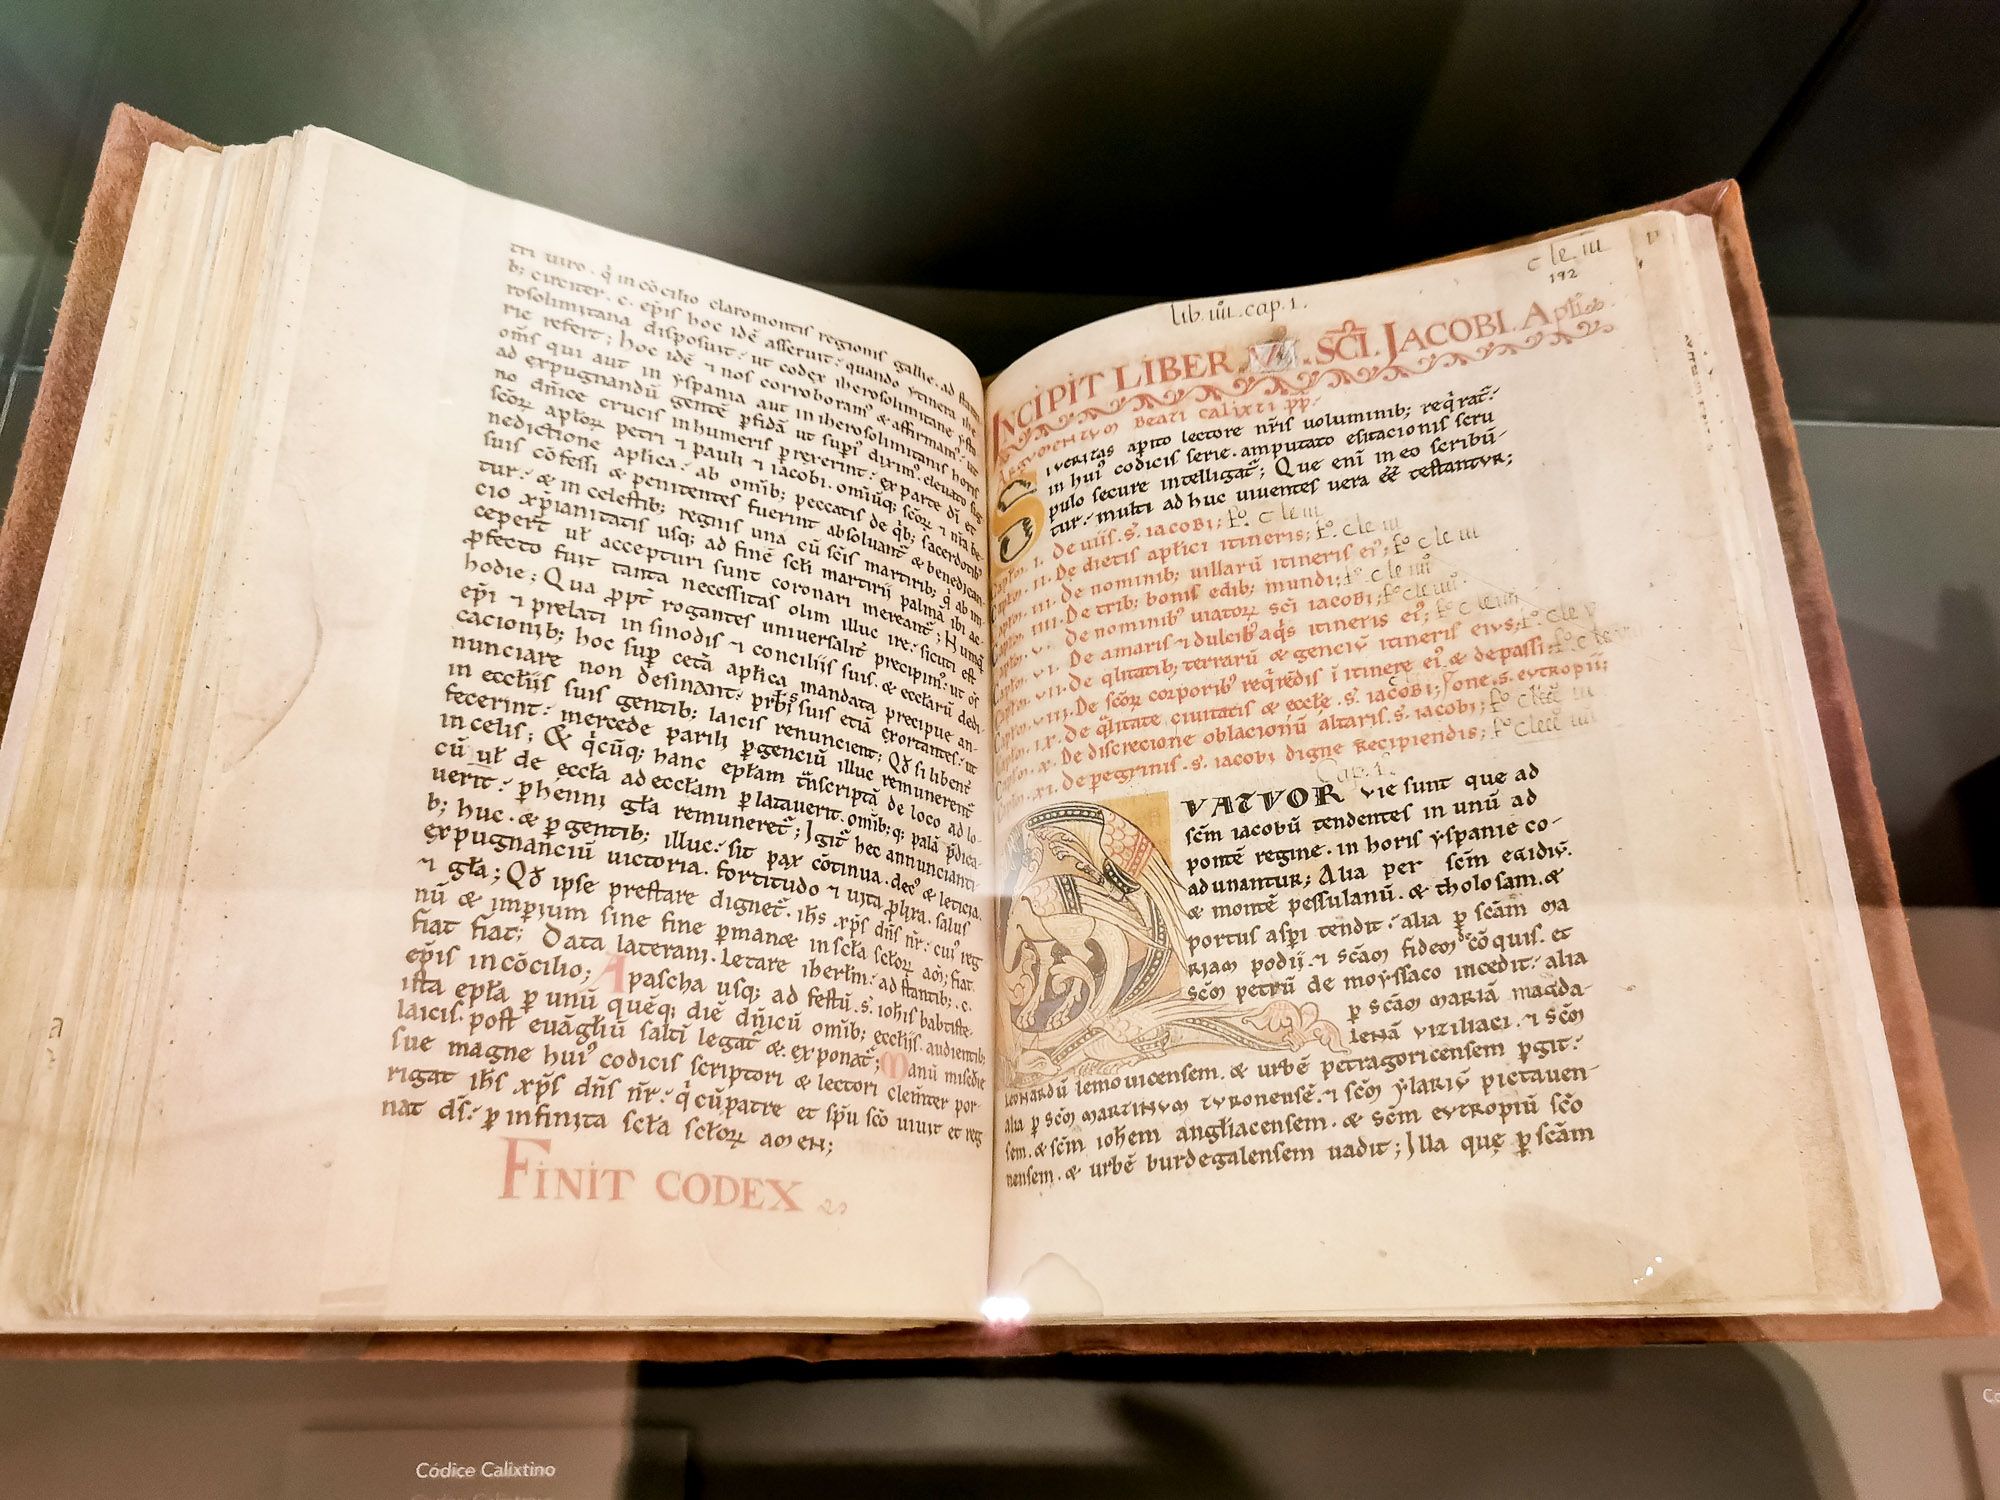 tri uiro. q̍ in cōcilio claromontis regionis gallie. ad
b; circiter. c. ep̄is hoc idē asseruit: quando ytinera ihe
rosolimitana disposuit: ut codex iherosolimitane ysto
rie refert; hoc idē ⁊ nos corroboram᷒ & affirmam᷒: ut
om̄s qui aut in yspania aut in iherosolimitanis horis
ad expugnandū gentē ꝑfidā ut sup̍i dixim᷒. eleuato sig
no dn̄ice crucis in humeris ꝑrexerint: ex parte dī et
sc̄oꝝ apl̄oꝝ petri ⁊ pauli ⁊ iacobi. omīuq; sc̄oꝝ ⁊ nr̄a be
nedictione apl̄ica: ab omīb; peccatis de q̍b; sacerdotib᷒
suis cōfessi & penitentes fuerint absoluant̄ & benedican
tur: & in celestib; regnis una cū sc̄is martirib; q̍ ab ini
cio xp̄ianitatis usq; ad finē scl̄i martirii palmā ibi ac
cepert̄ ul̄ accepturi sunt coronari mereant̄; Nunq̄
ꝓfecto fuit tanta necessitas olim illuc ire: sicuti est
hodie; Qua ꝓpt̄ rogantes uniuersalit̄ precipim᷒: ut om̄s
ep̄i ⁊ prelati in sinodis ⁊ conciliis suis. & eccl̄arū dedi
cacionib; hoc sup̄ cetā apl̄ica mandata precipue an
nunciare non desinant: pr̄bīs suis etiā exortantes: ut
in eccl̄iis suis gentib; laicis renuncient; Qd̄ si libent̄
fecerint: mercede parili ꝑgenciū illuc remunerent̄
in celis; Et q̍cūq; hanc epl̄am tn̄scriptā de loco ad lo
cū ul̄ de eccl̄a ad eccl̄am ꝑlatauerit. omīb; q; palā p̄dica
uerit: ꝑhenni gl̄a remuneret̄; Igit̄ hec annuncianti
b; huc. & ꝑgentib; illuc: sit pax cōtinua. dec᷒ & leticia.
expugnanciū uictoria. fortitudo ⁊ uita ꝓlixa. salus
⁊ gl̄a; Qd̄ ipse prestare dignet̄. ih̄s xp̄s dn̄s nr̄: cui᷒ reg
nū & imꝑium sine fine ꝑmanet in scl̄a scl̄oꝝ am̄; fiat
fiat fiat; Data laterani. letare iherl̄m: ad stantib; .c.
ep̄is in cōcilio; A pascha usq; ad festū .s̄. ioh̄is babtiste
ista epl̄a ꝑ unū quēq; diē dn̄icū omīb; eccl̄iis. audientib;
laicis. post euāgl̄iū saltī legat̄ & exponat̄; Manū misc̄die
sue magne hui᷒ codicis scriptori & lectori clem̄ter por
rigat ih̄s xp̄s dn̄s nr̄: q̍ cū patre et spū sc̄o uiuit et reg
nat ds̄: ꝑ infinita scl̄a scl̄oꝝ amen;
FINIT CODEX
lib. iiii. cap. 1.
c le iii
192
INCIPIT LIBER SC̄I. JACOBI. Apl̄i
Argumentum beati calixti pp̄.
Si ueritas aꝑito lectore nr̄is uoluminib; reqͥrat̄:
in hui᷒ codicis serie. amputato esitacionis scru
pulo secure intelligat̄; Que enī in eo scribū-
tur: multi ad huc uiuentes uera ēē testantur;
Capl̄m. I. De uiis. s̄. iacobi; fo. c le iii
Capl̄m. II. De dietis apl̄ici itineris; fo. c le iii
Capl̄m. III. De nominib; uillarū itineris ei᷒; fo. c le iii
Capl̄m. IIII. De trib; bonis edib; mundi; fo. c le iiii
Capl̄m. V. De nominib᷒ uiatorꝝ sc̄i iacobi; fo. c le iiii
Capl̄m. VI. De amaris ⁊ dulcib᷒ aq̍s itineris ei᷒; fo. c le iiii
Capl̄m. VII. De qlitatib; terrarū & genciū itineris eius; fo. c le v
Capl̄m. VIII. De sc̄orꝝ corporib᷒ req̍rēdis ī itinere ei᷒ & de passione. s̄. eutropii;
Capl̄m. IX. De qlitate ciuitatis & eccl̄e. s̄. iacobi;
Capl̄m. X. De discrecione oblacionū altaris. s̄. iacobi;
Capl̄m. XI. De peregrinis. s̄. iacobi digne recipiendis;
Cap. 1.
VATVOR vie sunt que ad
sc̄m iacobū tendentes in unū ad
pontē regine. in horis yspanie co-
adunantur; Alia per sc̄m egidiū.
& montē pessulanū. & tholosam. &
portus asꝑi tendit: alia ꝑ sc̄am ma
riam podii. ⁊ sc̄am fidem de cōquis. et
sc̄m petrū de moyssaco incedit: alia
ꝑ sc̄am mariā magda-
lenā viziliaci. ⁊ sc̄m
leonardū lemouicensem. & urbē petragoricensem ꝑgit:
alia ꝑ sc̄m martinum turonensē. ⁊ sc̄m ylariū pictauen-
sem. & sc̄m ioh̄em angliacensem. & sc̄m eutropiū sc̄o
nensem. & urbē burdegalensem uadit; Illa quę ꝑ sc̄am
Códice Calixtino